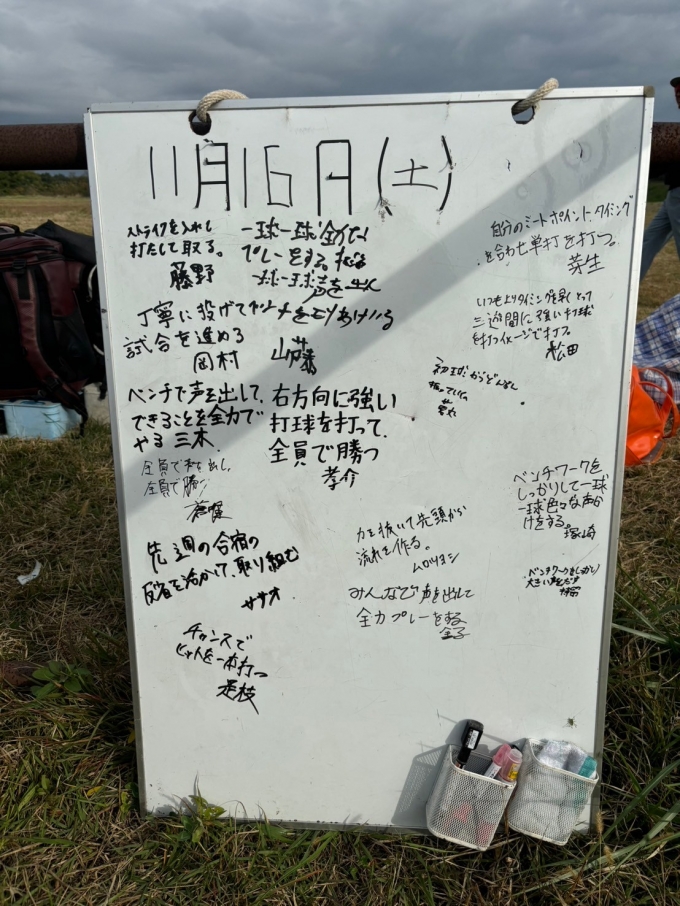 11月16日(土)
ストライクを入れて
打たして取る。
藤野
一球一球全力で
プレーをする。
一球一球声を出し
丁寧に投げて
試合を進める
岡村
ベンチで声を出して、
できることを全力で
やる 三木
右方向に強い
打球を打って、
全員で勝つ
孝介
全員で声を出し、
全員で勝つ
先週の合宿の
反省を活かして、取り組む
ササオ
チャンスで
ヒットを一本打つ
是枝
自分のミートポイント、タイミング
を合わせ単打を打つ。
芽生
いつもよりタイミングを早くとって
三遊間に強い打球
を打つイメージで打つ。
松田
初球からどんどん
振っていく
ベンチワークを
しっかりして一球
一球色々な声か
けをする。
塚崎
ベンチワークをしっかり
大きい声をだす
力を抜いて先頭から
流れを作る。
ムロツヨシ
みんなで声を出して
全力プレーをする
金子